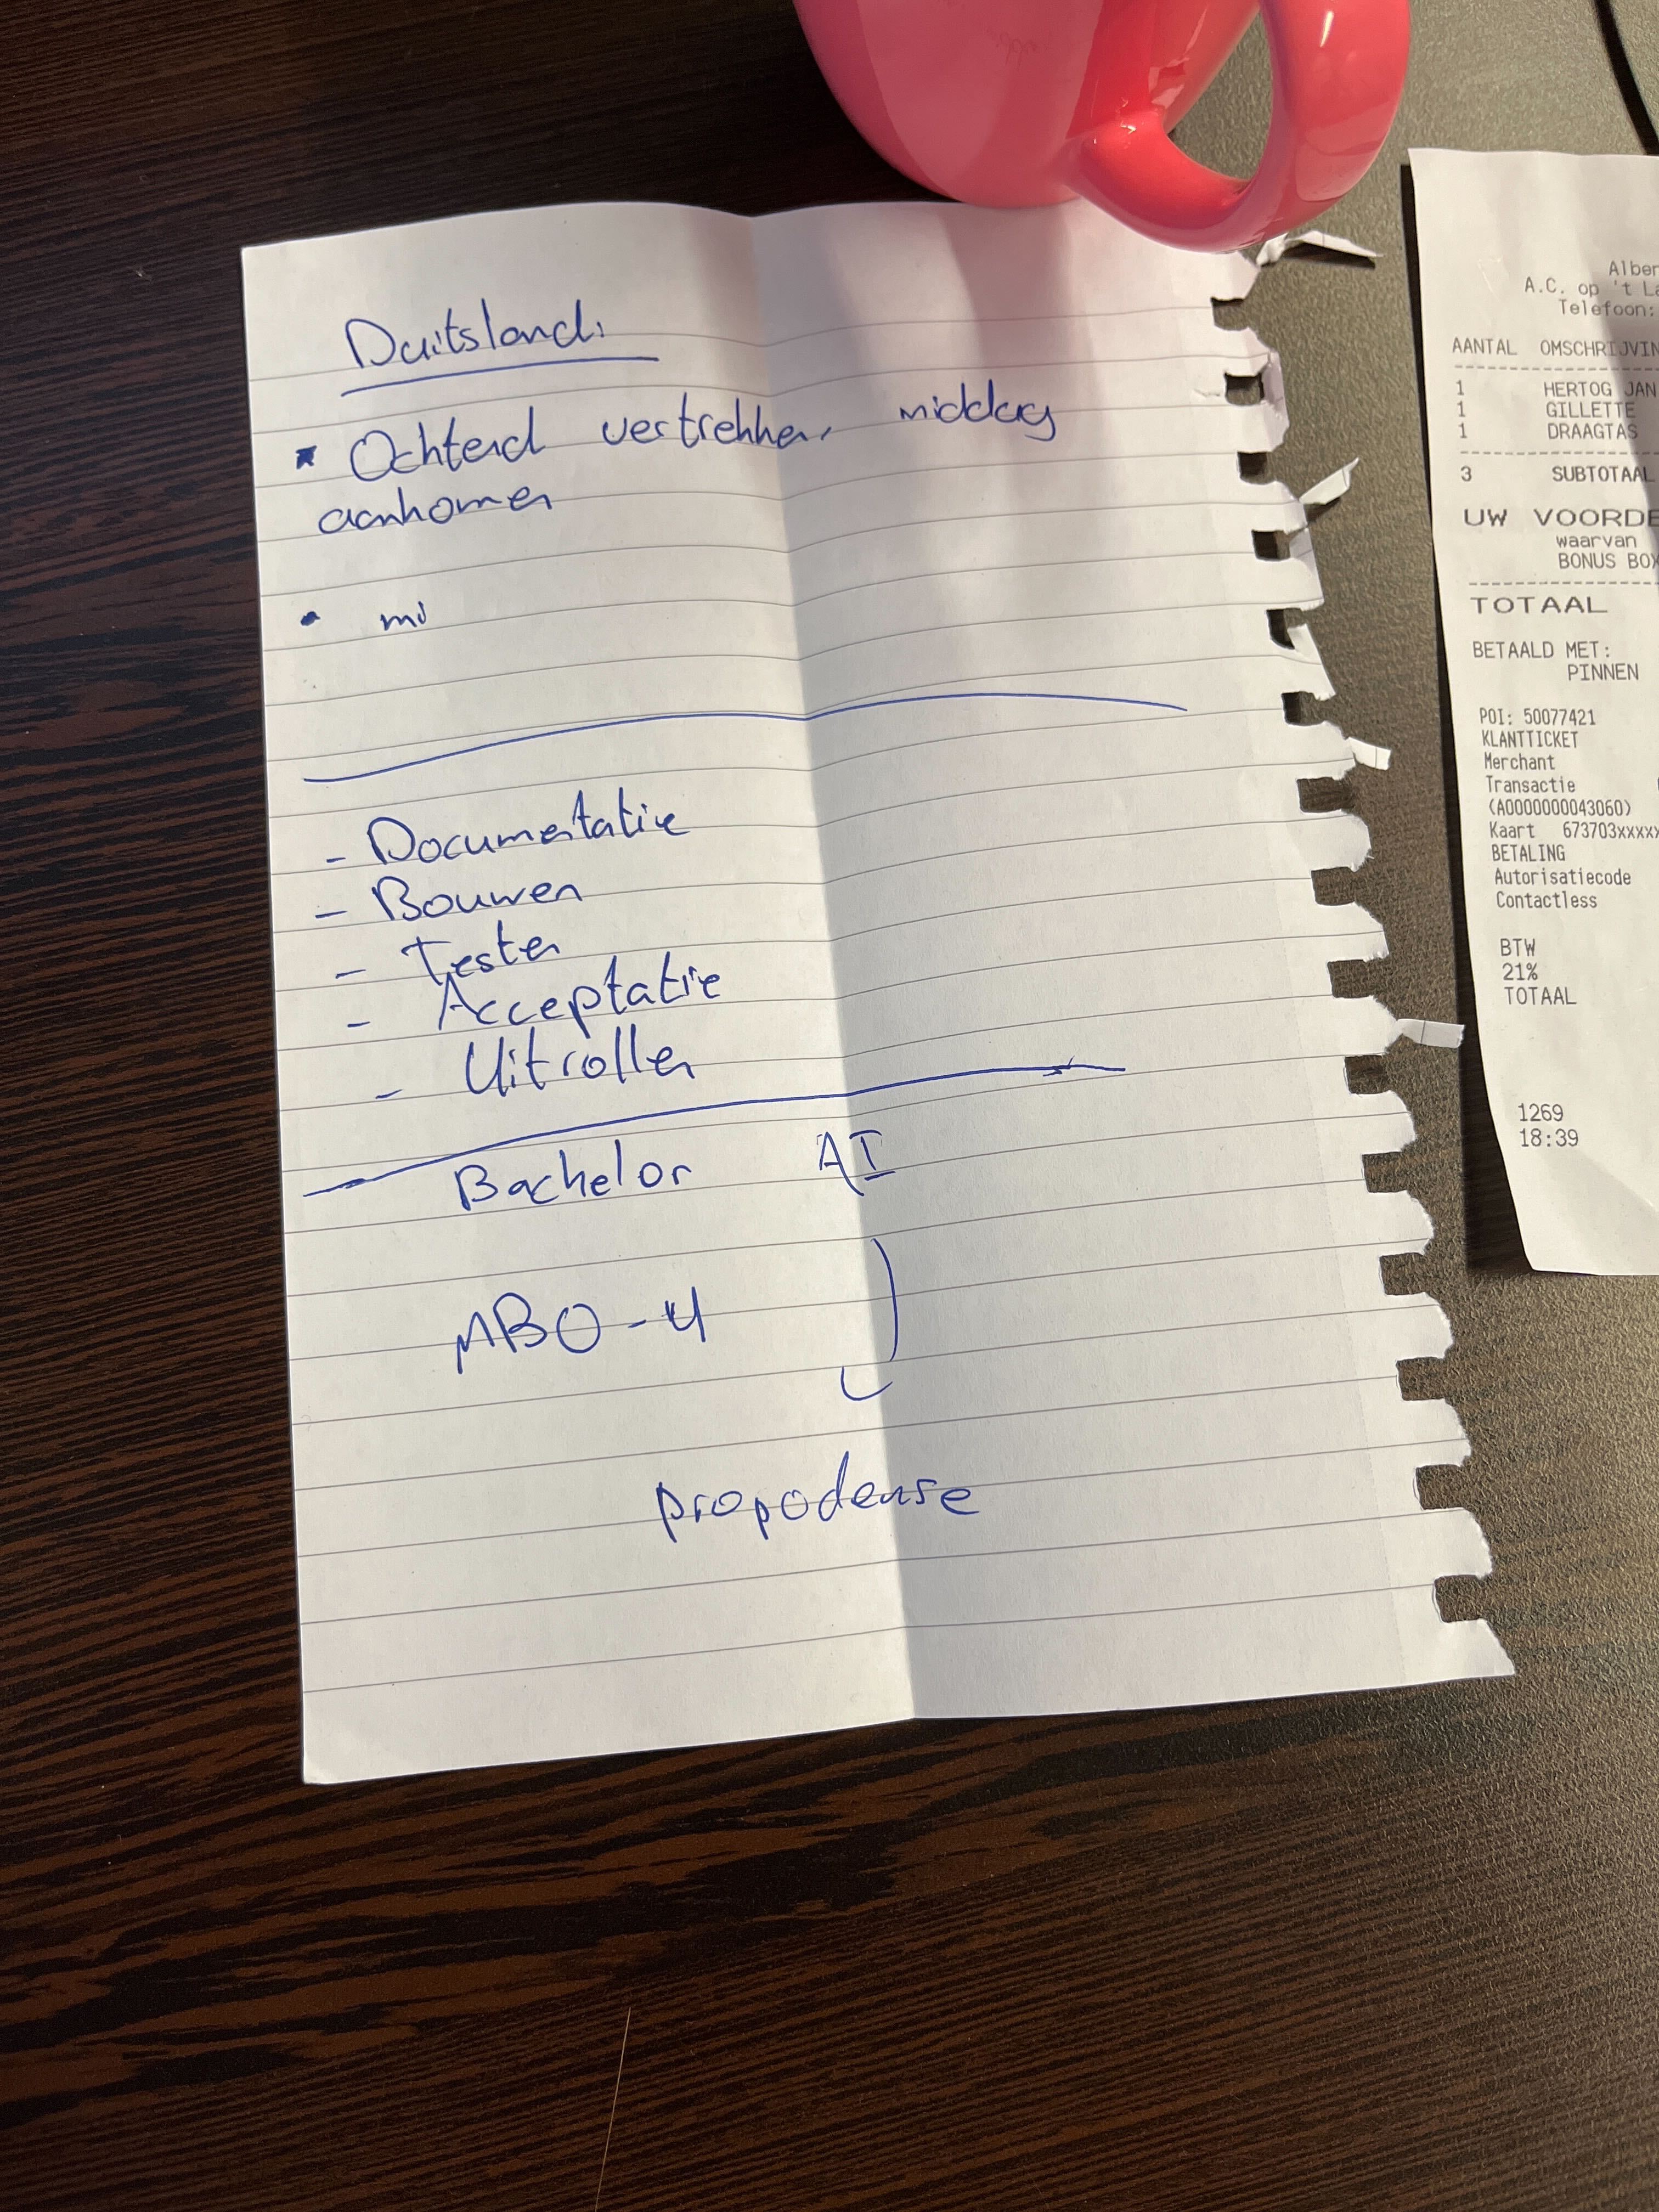 Duitsland:
* Ochtend vertrekken, middag
aankomen
• mi
- Documentatie
- Bouwen
- Testen
- Acceptatie
- Uitrollen
Bachelor AI
MBO-4
propodeuse
Alber
A.C. op 't La
Telefoon:
AANTAL OMSCHRIJVIN
1 HERTOG JAN
1 GILLETTE
1 DRAAGTAS
3 SUBTOTAAL
UW VOORDE
waarvan
BONUS BOX
TOTAAL
BETAALD MET:
PINNEN
POI: 50077421
KLANTTICKET
Merchant
Transactie
(A0000000043060)
Kaart 673703xxxxx
BETALING
Autorisatiecode
Contactless
BTW
21%
TOTAAL
1269
18:39